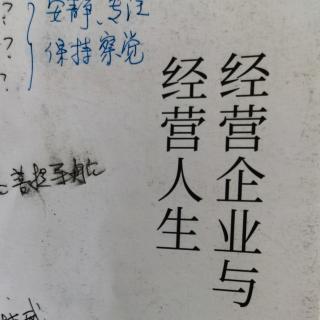 ? 安静、专注
? 保持察觉
?
经营企业与
经营人生